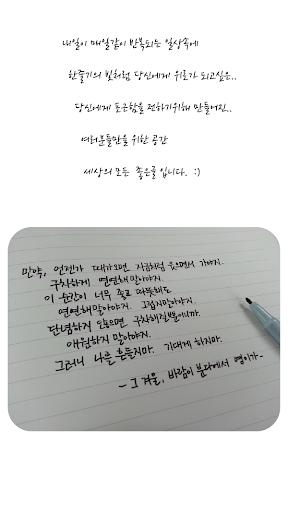 내일이 매일같이 반복되는 일상속에
한줄기의 빛처럼 당신에게 위로가 되고싶은..
당신에게 포근함을 전하기위해 만들어진..
여러분들만을 위한 공간
세상의 모든 좋은글 입니다. :)
만약, 언젠가 때가오면 지금처럼 웃으면서 가야지.
구차하게 연연해말아야지.
이 순간이 너무 좋고 따뜻해도
연연해말아야지. 그립지말아야지.
단념하지 오늘으면 구차해질뿐이니까.
애원하지 말아야지.
그러니 나를 흔들지마. 기대게 하지마.
- 그 겨울, 바람이 분다에서 영이가-